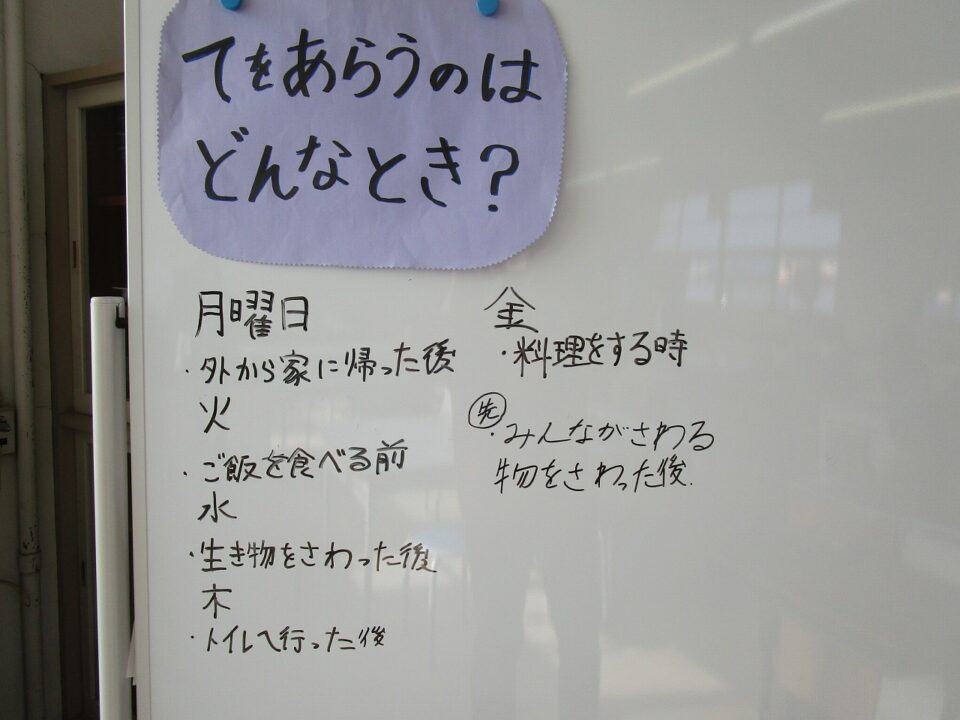 てをあらうのは
どんなとき?
月曜日
・外から家に帰った後
火
・ご飯を食べる前
水
・生き物をさわった後
木
・トイレへ行った後
金
・料理をする時
先
・みんながさわる
物をさわった後.